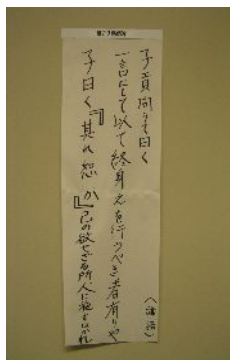 子貢問うて曰く
一言にして以て終身之を行うべき者有りや
子曰く『其れ恕か』己の欲せざる所人に施す勿れ
(論語)